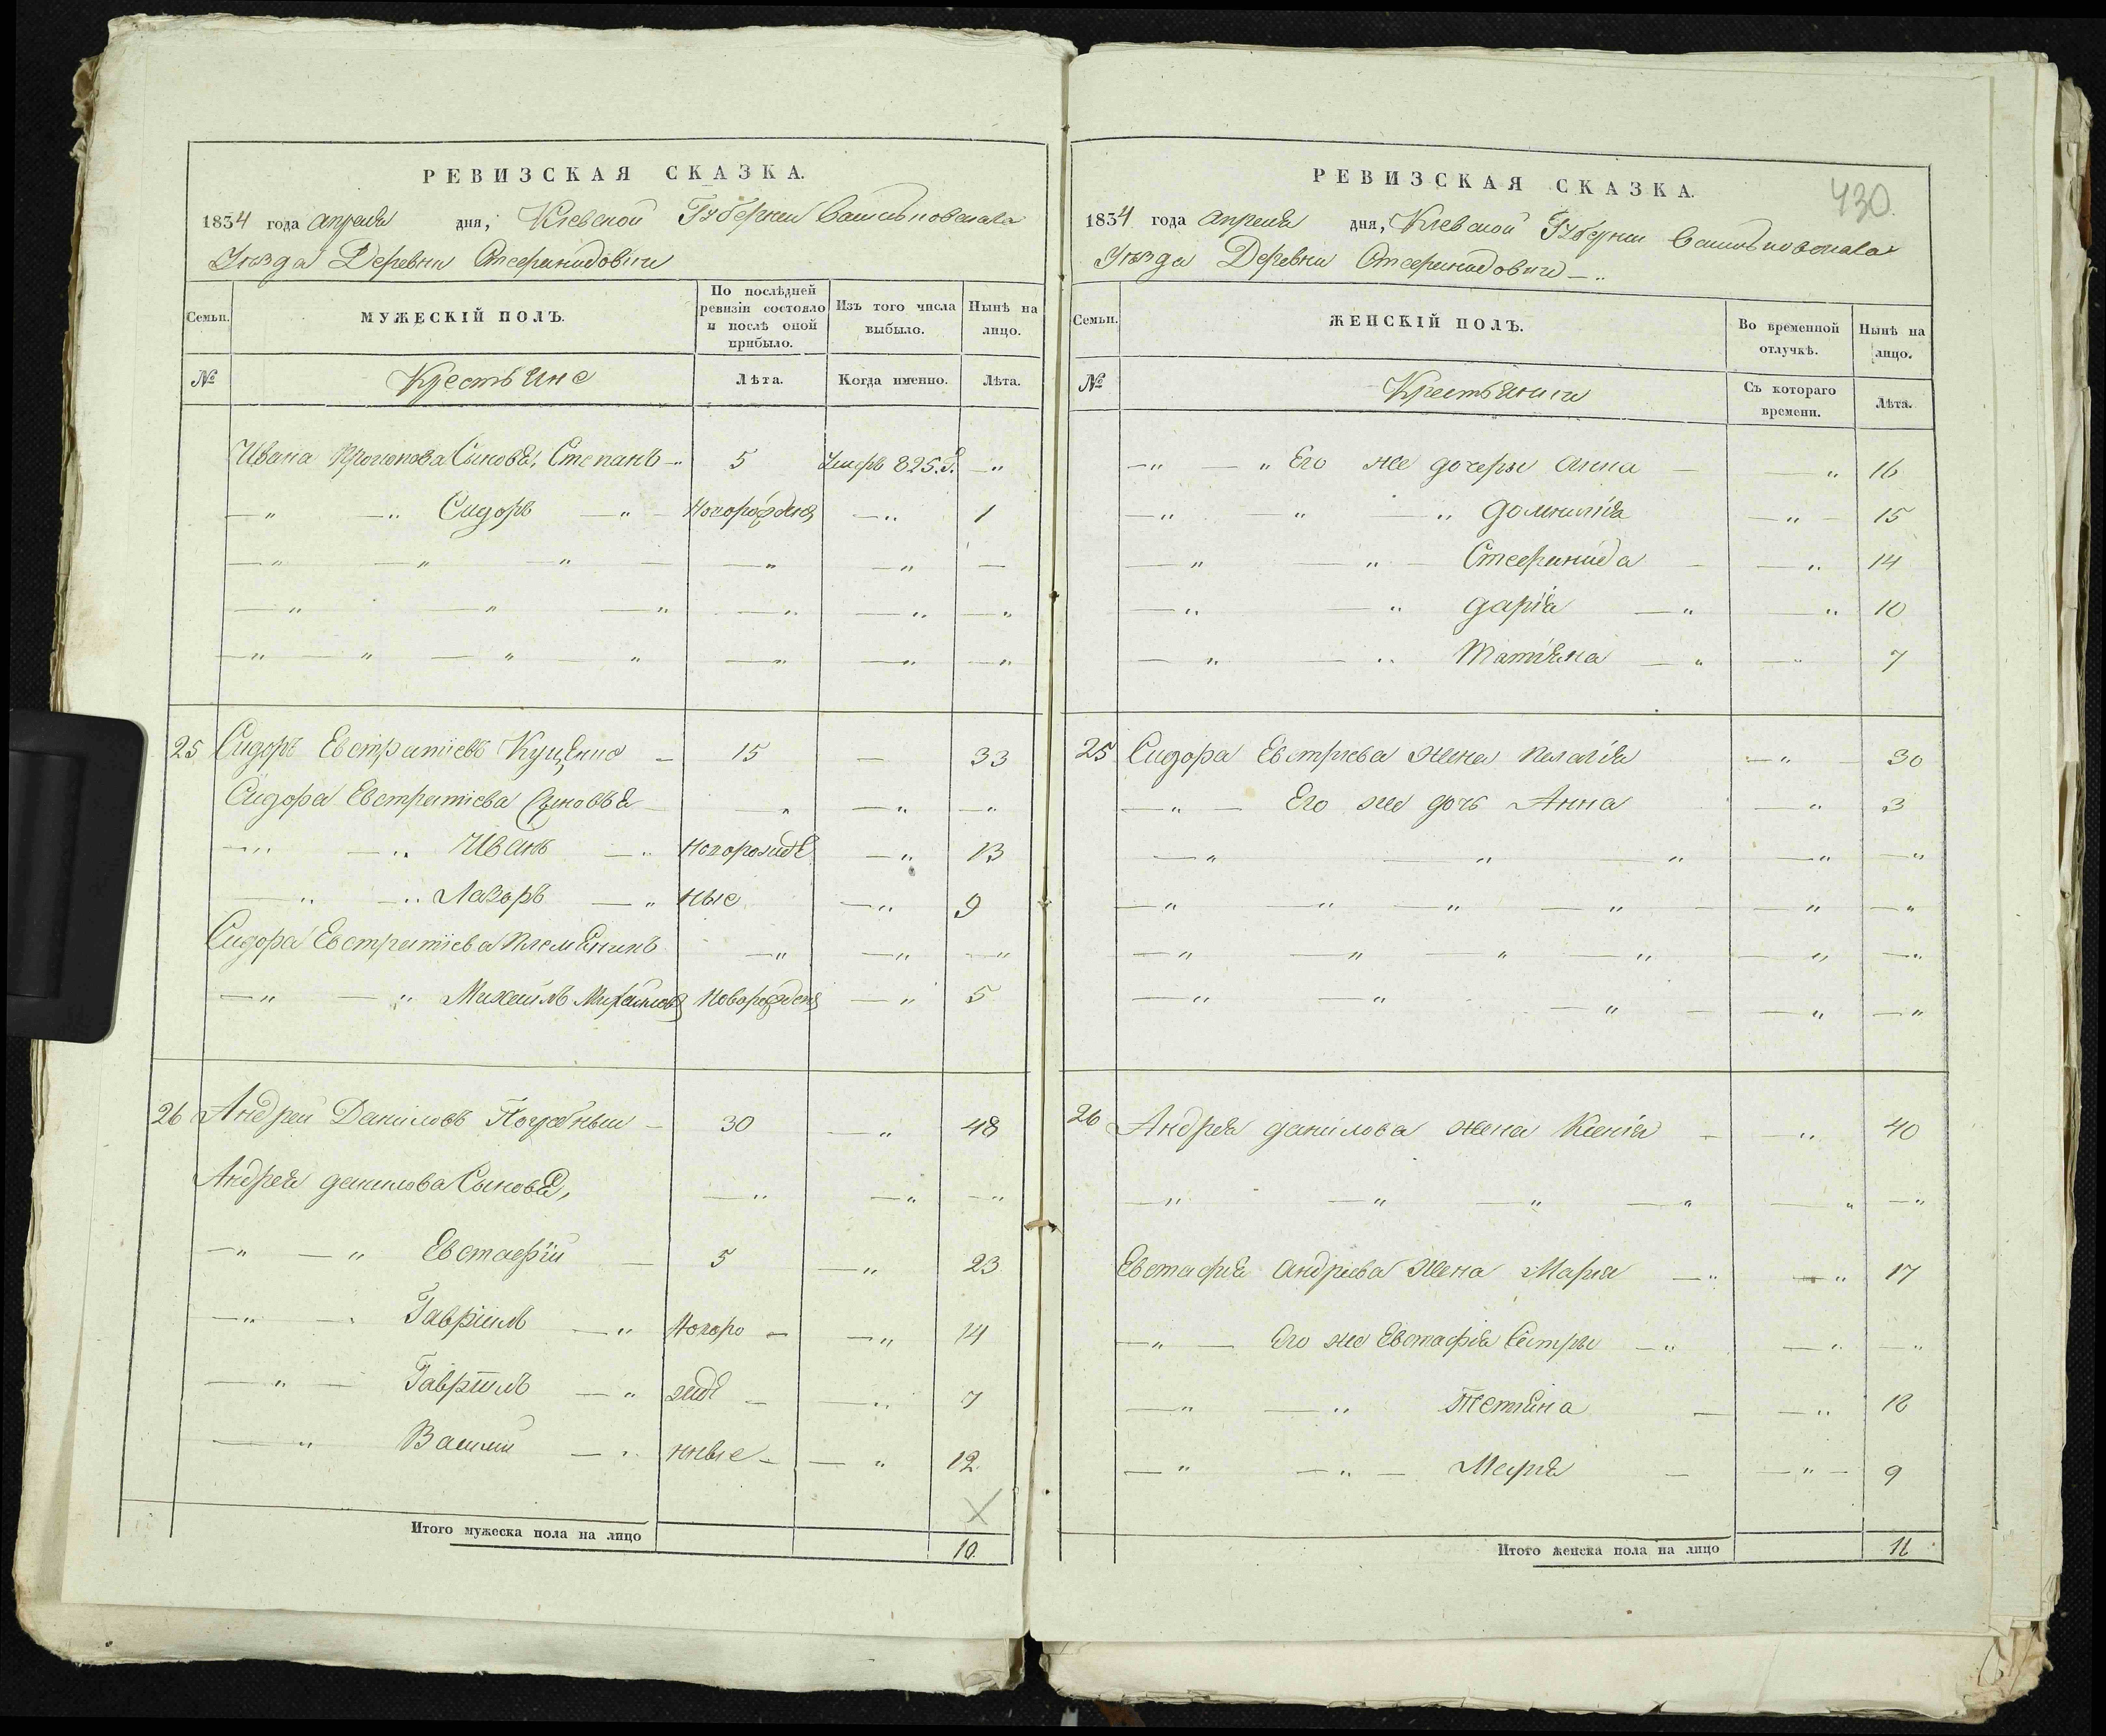 РЕВИЗСКАЯ СКАЗКА.
1834 года апреля дня, Кіевской Губернии Васильковскаго
Уѣзда Деревни Стефринидовки
Семьи. МУЖЕСКІЙ ПОЛЪ. По послѣдней ревизіи состояло и послѣ оной прибыло. Изъ того числа выбыло. Нынѣ на лицо.
№ Крестьяне Лѣта. Когда именно. Лѣта.
Ивана Сыновья, Степанъ — 5 Умеръ 825. —
— — Сидоръ — 1
— — — — — —
— — — — — —
— — — — — — —
25 Сидоръ Евстратіевъ Куценко — 15 — 33
Сидора Евстратіева Сыновья — — —
— — Иванъ — новорожде — 13
— — Лазоръ — ные — 9
Сидора Евстратіева племянникъ — — —
— — Михаилъ Михайловъ — 5
26 Андрей Даниловъ — 30 — 48
Андрея данилова Сыновья, — — —
— — Евстафій — 5 — 23
— — Гавріилъ — новоро — — 14
— — Гавріилъ — жде — — 7
— Василій — нные — — 12
Итого мужеска пола на лицо 10.
430.
РЕВИЗСКАЯ СКАЗКА.
1834 года апреля дня, Кіевской Губернии Васильковскаго
Уѣзда Деревни Стефринидовки —
Семьи. ЖЕНСКІЙ ПОЛЪ. Во временной отлучкѣ. Нынѣ на лицо.
№ Крестьянки Съ котораго времени. Лѣта.
— — Его же дочери анна — — 16
— — — — 15
— — — — 14
— — дарія — — 10
— — Татіяна — — 7
25 Сидора жена Пелагія — — 30
— — Его же дочь Анна — 3
— — — — —
— — — — — — —
— — — — — —
— — — — —
26 Андрея данилова жена Ксенія — — 40
— — — — — —
Евстафія андреева Жена Марія — — 17
— — Его же Евстафія Сестры — — —
— — — — 12
— — — Марія — — 9
Итого женска пола на лицо 11